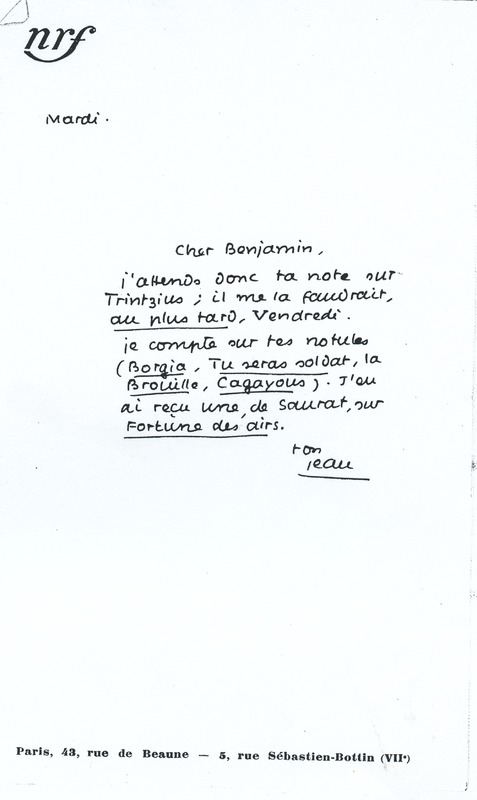 nrf
Mardi.
Cher Benjamin,
j'attends donc ta note sur
Trintzius ; il me la faudrait,
au plus tard, Vendredi.
je compte sur tes notules
(Borgia, Tu seras soldat, la
Brouille, Cagayous). J'en
ai reçu une, de Saurat, sur
Fortune des airs.
ton
jean
Paris, 43, rue de Beaune — 5, rue Sébastien-Bottin (VIIe)